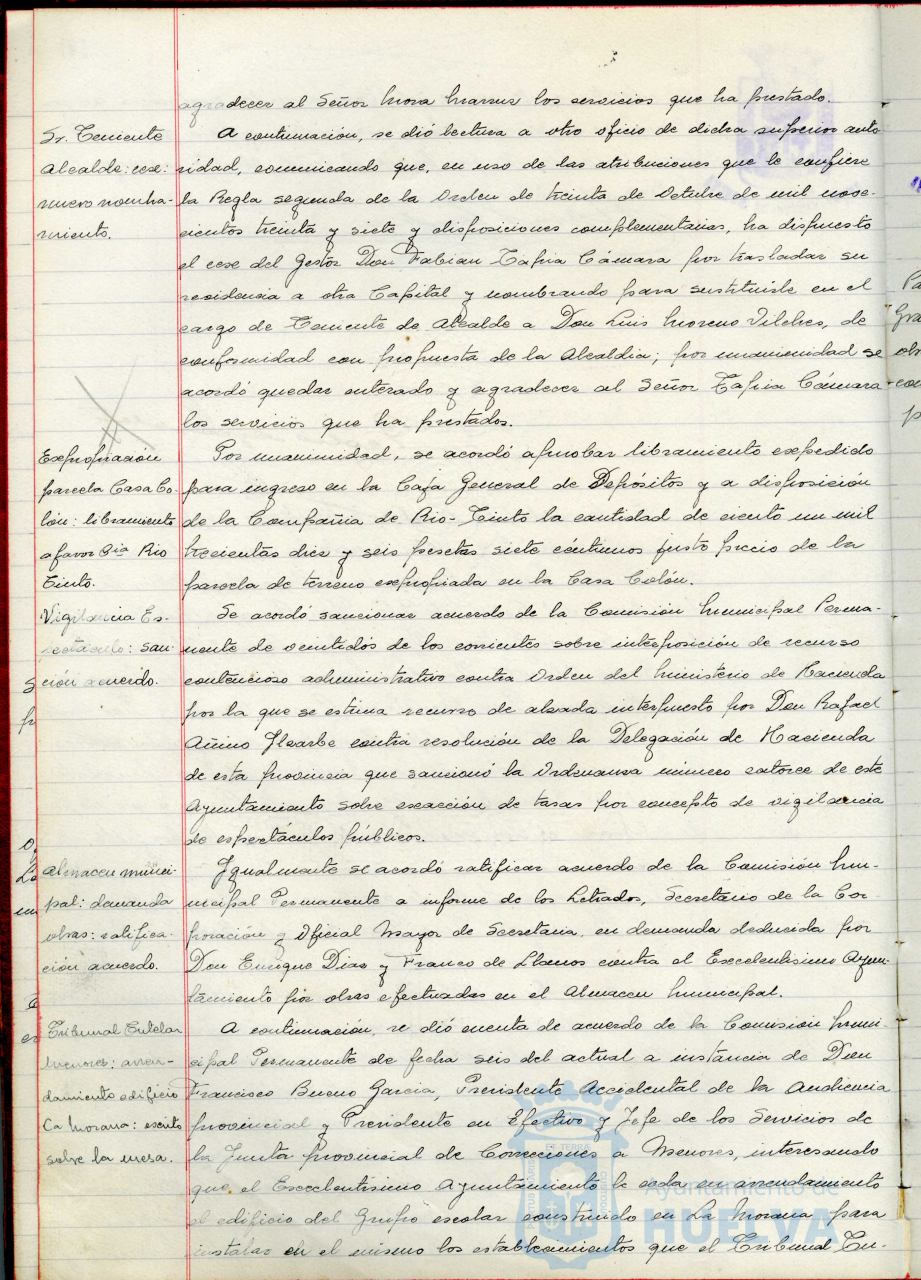 agradecer al Señor Mora Marrus los servicios que ha prestado.
Sr. Teniente
Alcalde: cese:
nuevo nombra-
miento.
A continuación, se dió lectura a otro oficio de dicha superior auto-
ridad, comunicando que, en uso de las atribuciones que le confiere
la Regla segunda de la Orden de treinta de Octubre de mil nove-
cientos treinta y siete y disposiciones complementarias, ha dispuesto
el cese del Gestor Don Fabian Tapia Cámara por trasladar su
residencia a otra Capital y nombrando para sustituirle en el
cargo de Teniente de Alcalde a Don Luis Moreno Vilches, de
conformidad con propuesta de la Alcaldia; por unanimidad se
acordó quedar enterado y agradecer al Señor Tapia Cámara
los servicios que ha prestados.
Expropiación
parcela Casa Co-
lón: libramiento
a favor Cia Rio
Tinto.
Por unanimidad, se acordó aprobar libramiento expedido
para ingreso en la Caja General de Depósitos y a disposición
de la Compañia de Rio-Tinto la cantidad de ciento un mil
trecientas diez y seis pesetas siete céntimos justo precio de la
parcela de terreno expropiada en la Casa Colón.
Vigilancia Es-
pectáculo: san-
ción acuerdo.
Se acordó sancionar acuerdo de la Comisión Municipal Perma-
nente de veintidós de los corrientes sobre interposición de recurso
contencioso administrativo contra Orden del Ministerio de Hacienda
por la que se estima recurso de alzada interpuesto por Don Rafael
contra resolución de la Delegación de Hacienda
de esta provincia que sancionó la Ordenanza número catorce de este
Ayuntamiento sobre exacción de tasas por concepto de vigilancia
de espectáculos públicos.
Almacen munici-
pal: demanda
obras: ratifica-
ción acuerdo.
Igualmente se acordó ratificar acuerdo de la Comisión Mu-
nicipal Permanente a informe de los Letrados, Secretario de la Cor-
poración y Oficial Mayor de Secretaria, en demanda deducida por
Don Enrique Diaz y Franco de Llanos contra el Excelentisimo Ayun-
tamiento por obras efectuadas en el Almacen Municipal.
Tribunal Tutelar
Menores: arren-
damiento edificio
La Morana: escrito
sobre la mesa.
A continuación, se dió cuenta de acuerdo de la Comisión Muni-
cipal Permanente de fecha seis del actual a instancia de Don
Francisco Bueno Garcia, Presidente Accidental de la Audiencia
provincial y Presidente en Efectivo y Jefe de los Servicios de
la Junta provincial de Correcciones a Menores, interesando
que el Excelentisimo Ayuntamiento le ceda en arrendamiento
el edificio del Grupo escolar construido en La Morana para
instalar en el mismo los establecimientos que el Tribunal Tu-
Ayuntamiento de
HUELVA